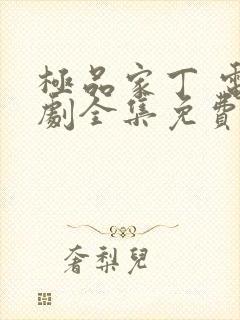 極品家丁 電
劇全集免費
奢梨兒